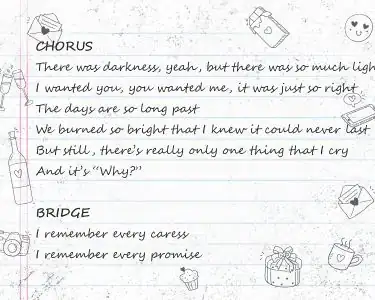 CHORUS
There was darkness, yeah, but there was so much ligh
I wanted you, you wanted me, it was just so right
The days are so long past
We burned so bright that I knew it could never last
But still, there's really only one thing that I cry
And it's “Why?”
BRIDGE
I remember every caress
I remember every promise